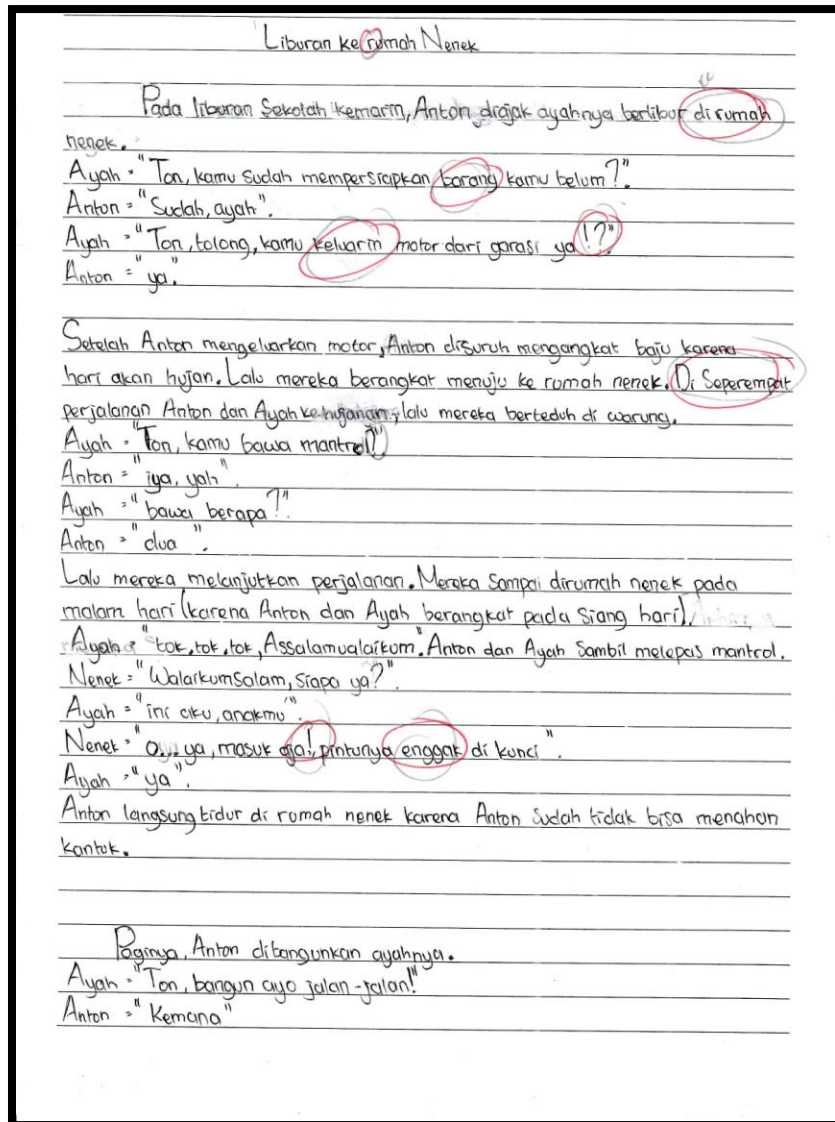 Liburan ke rumah Nenek
Pada liburan Sekolah kemarin, Anton diajak ayahnya berlibur di rumah
nenek.
Ayah = "Ton, kamu sudah mempersiapkan barang kamu belum?".
Anton = "Sudah, ayah".
Ayah = "Ton, tolong, kamu keluarin motor dari garasi ya!?".
Anton = "ya".
Setelah Anton mengeluarkan motor, Anton disuruh mengangkat baju karena
hari akan hujan. Lalu mereka berangkat menuju ke rumah nenek. Di Seperempat
perjalanan Anton dan Ayah kehujanan, lalu mereka berteduh di warung.
Ayah = "Ton, kamu bawa mantrol?"
Anton = "iya, yah".
Ayah = "bawa berapa?".
Anton = "dua".
Lalu mereka melanjutkan perjalanan. Mereka Sampai dirumah nenek pada
malam hari (karena Anton dan Ayah berangkat pada Siang hari).
Ayah = "tok, tok, tok, Assalamualaikum". Anton dan Ayah Sambil melepas mantrol.
Nenek = "Walaikumsalam, siapa ya?".
Ayah = "ini aku, anakmu".
Nenek = "o... ya, masuk aja!, pintunya enggak di kunci".
Ayah = "ya".
Anton langsung tidur di rumah nenek karena Anton Sudah tidak bisa menahan
kantuk.
Paginya, Anton dibangunkan ayahnya.
Ayah = "Ton, bangun ayo jalan-jalan!"
Anton = "Kemana"